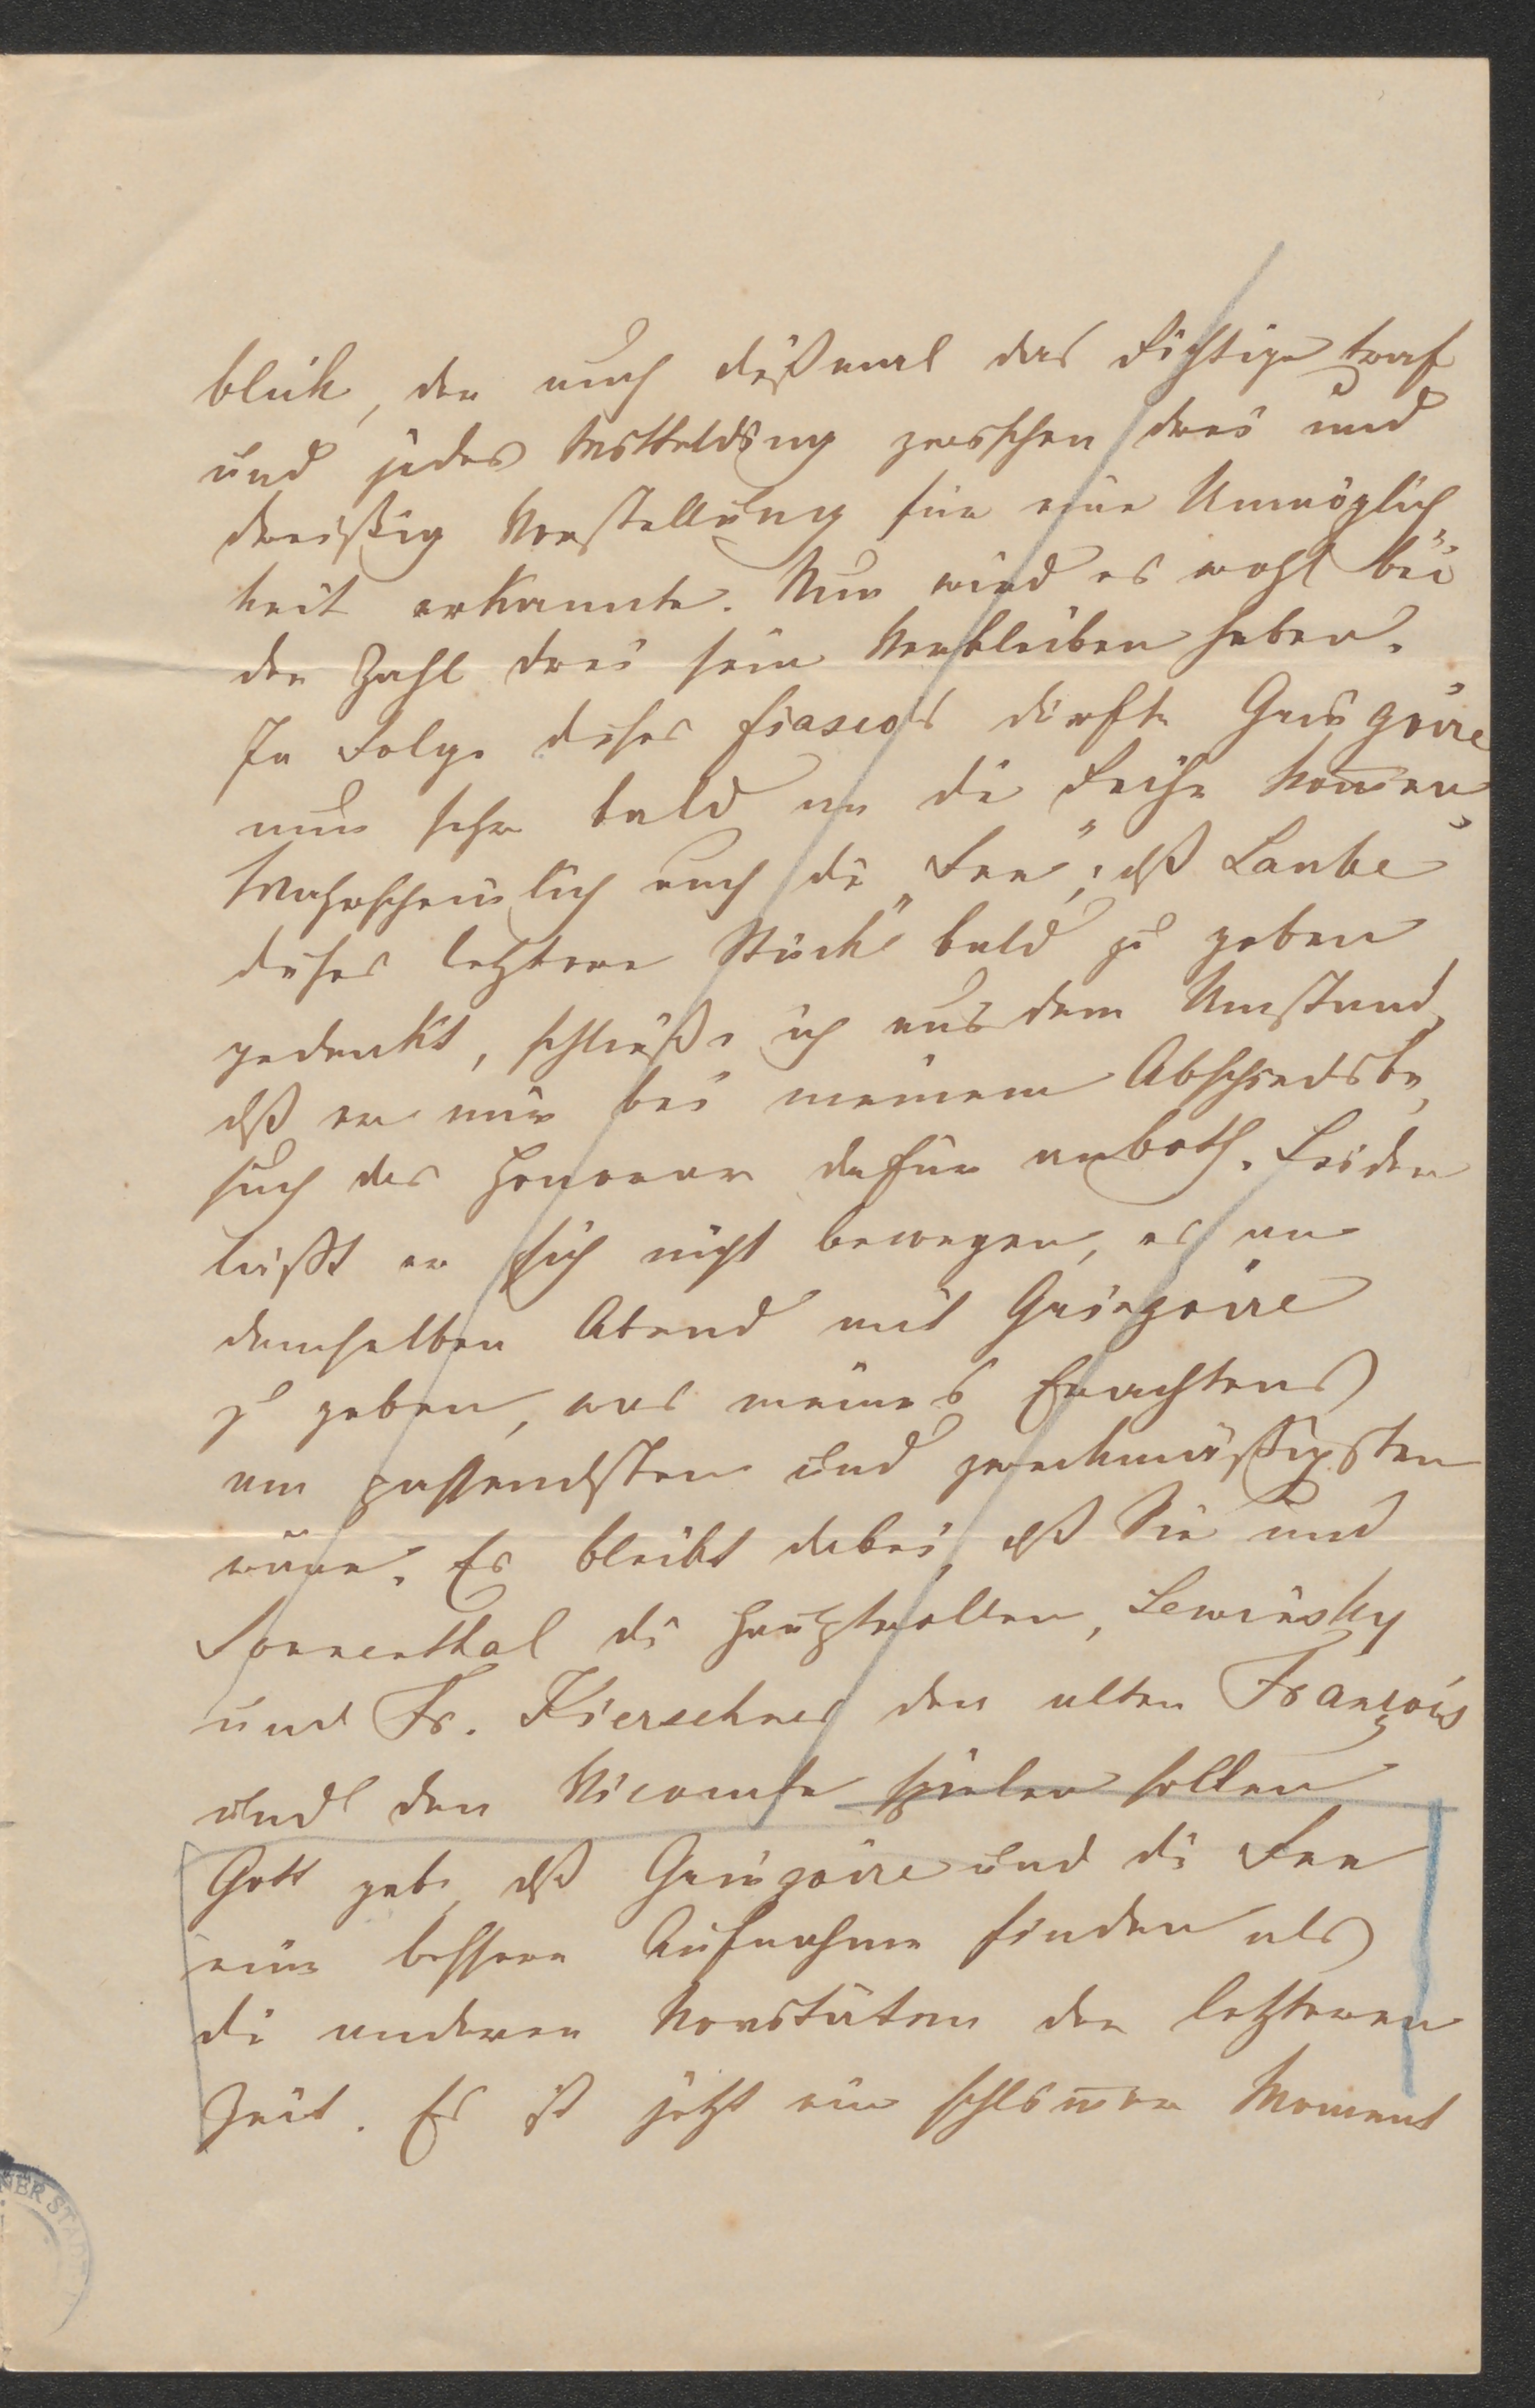 blick, der auch dißmal das Richtige traf
und jedes Mittelding zwischen drei und
dreißig Vorstellung für eine Unmöglich-
keit erkannte. Nun wird es wohl bei
der Zahl drei sein Verbleiben haben.
In Folge dieses Fiascos dürfte Gringoire
nun sehr bald an die Reihe kom̅en,
Wahrscheinlich auch die „Fee“; dß Laube
dieses letztere Stück bald zu geben
gedenkt, schließe ich aus dem Umstand,
dß er mir bei meinem Abschiedsbe-
such das Honorar dafür anboth. Leider
läßt er sich nicht bewegen, es an
demselben Abend mit Gringoire
zu geben, was meines Erachtens
am passendsten und zweckmäßigsten
wäre. Es bleibt dabei, dß Sie und
Sonnenthal die Hauptrollen, Lewinsky
und Fr. Kierschner den alten François
und den Vicomte spielen sollen
Gott gebe, dß Gringoire und die Fee
eine bessere Aufnahme finden als
die anderen Novitäten der letzteren
Zeit. Es ist jetzt ein schlim̅er Moment
NER STA